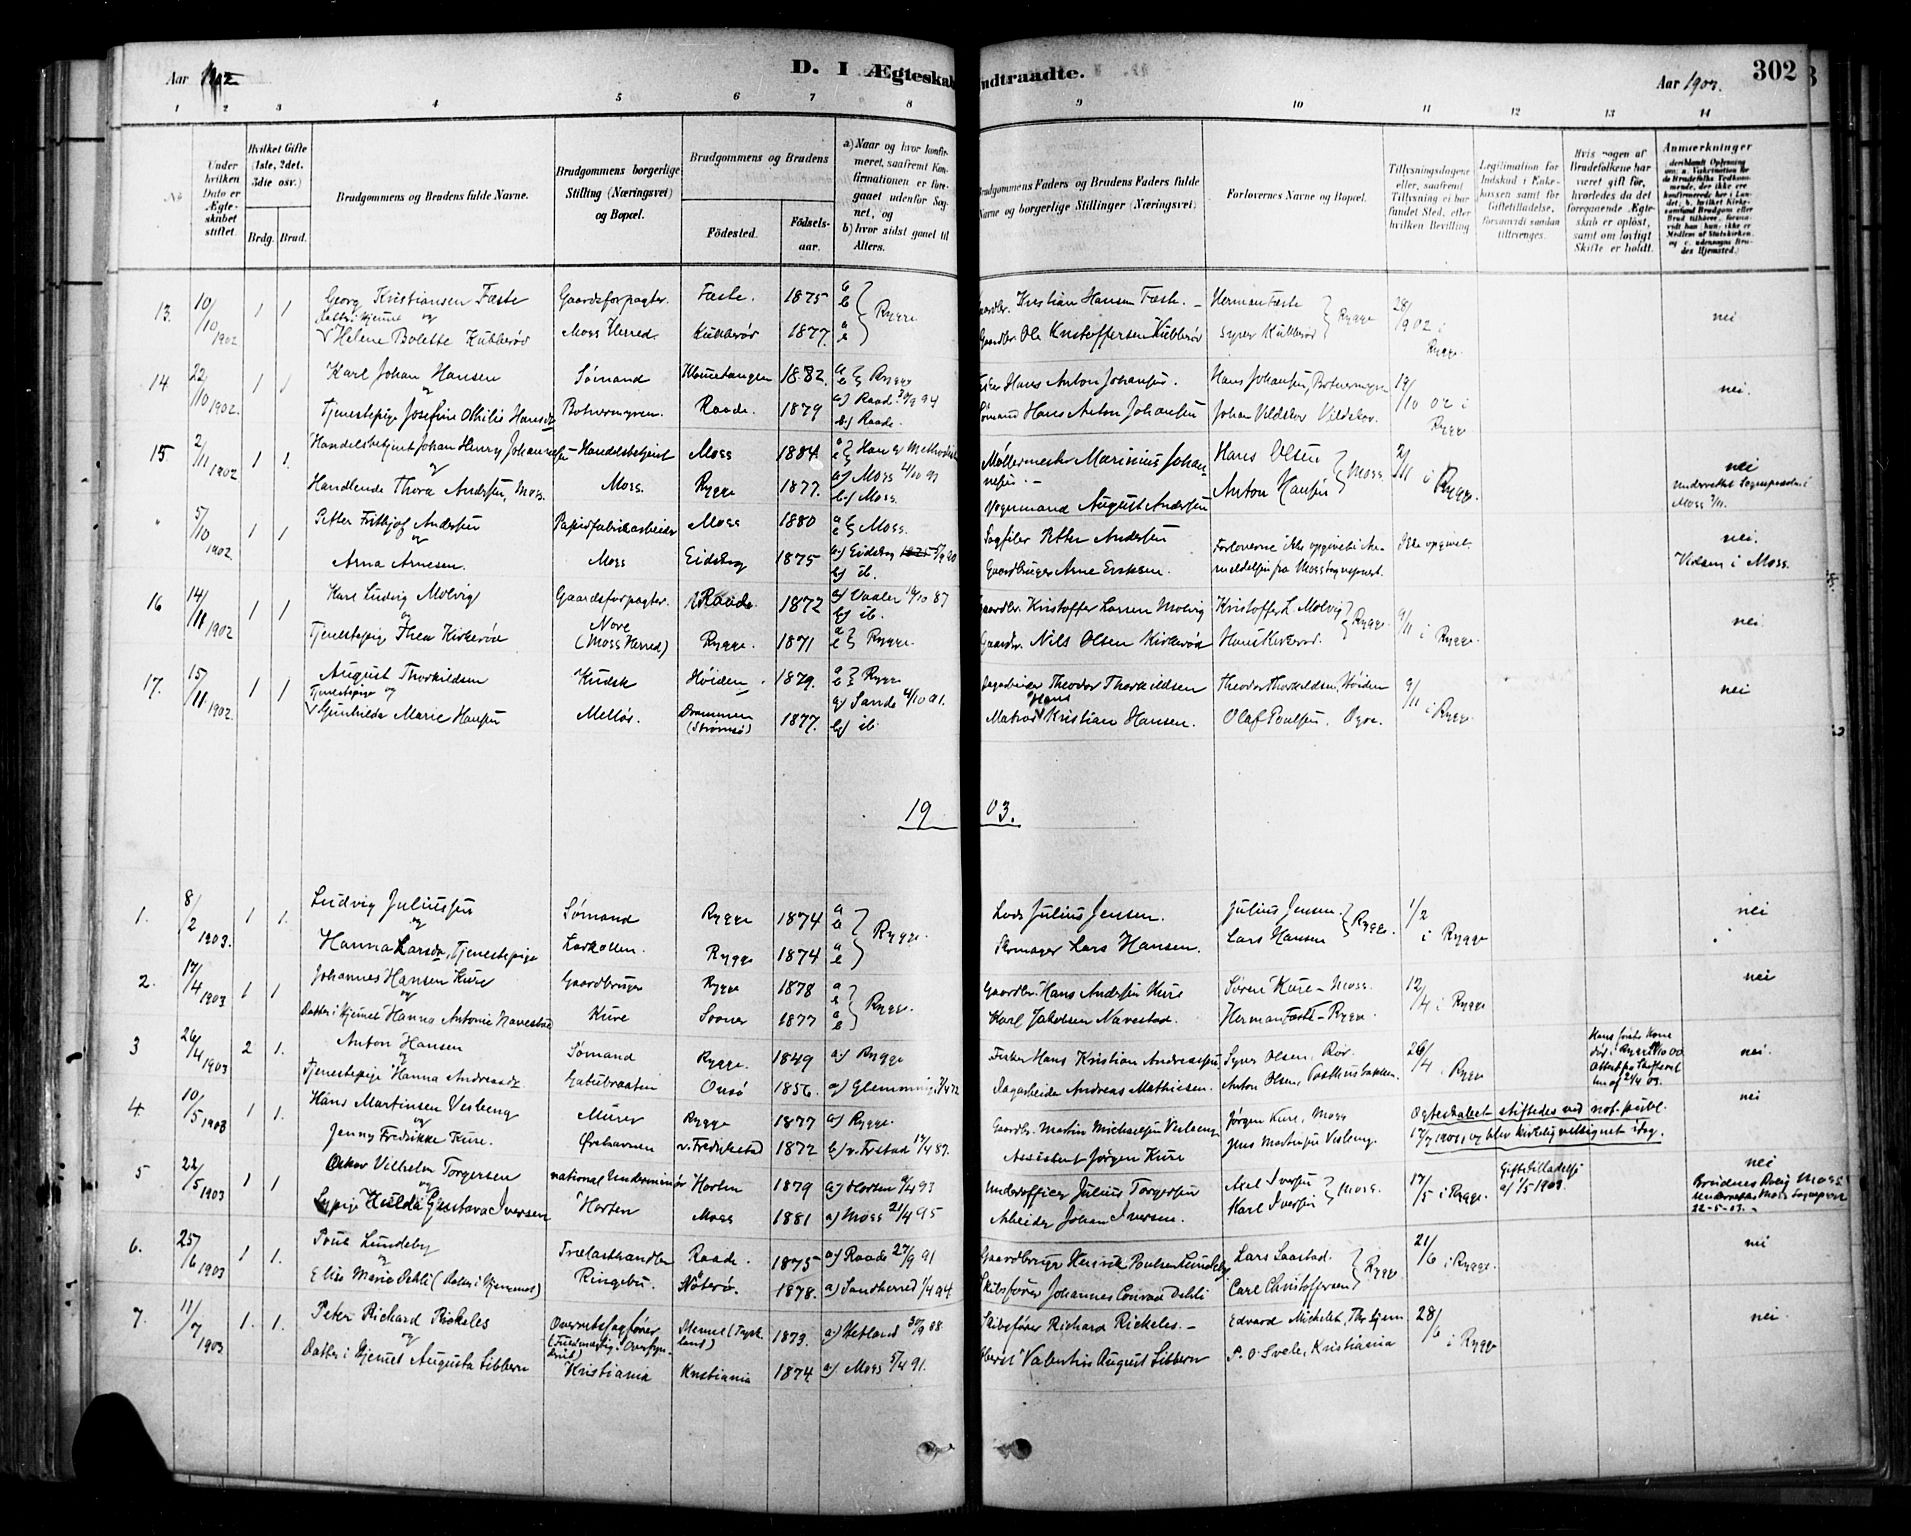 Aar 1902
D. I Ægteskab
Indtraadte.
Aar 1902.
302
1 2 3 4 5 6 7 8 9 10 11 12 13 14
No
Under hvilken Dato er Ægteskabet stiftet.
Hvilket Gifte (1ste, 2det, 3die osv.)
Brdg. Brud.
Brudgommens og Brudens fulde Navne.
Brudgommens borgerlige Stilling (Næringsvei) og Bopæl.
Brudgommens og Brudens
Fødested.
Fødselsaar.
a) Naar og hvor konfirmeret, saafremt Konfirmationen er foregaaet udenfor Sognet, og
b) hvor sidst gaaet til Alters.
Brudgommens Faders og Brudens Faders fulde Navne og borgerlige Stillinger (Næringsvei)
Forlovernes Navne og Bopæl.
Tillysningsdagene eller, saafremt Tillysning ei har fundet Sted, efter hvilken Bevilling
Legitimation for Indskud i Enkekassen samt for Giftetilladelse, forsaavidt saadan tiltrænges.
Hvis nogen af Brudefolkene har været gift før, hvorledes da det foregaaende Ægteskab er opløst, samt om lovligt Skifte er holdt.
Anmærkninger
13. 10/10 1902 1 1 Georg Kristiansen Fæste Gaardsforpagter. Fæste. 1875 a b } Rygge Gaardbr. Kristian Hansen Fæste. Herman Fæste } Rygge 28/9 02 i Rygge. nei
Datter i hjemmet og Helene Bolette Kubberød Moss Herred. Kubberød 1877. a b Gaardbr. Ole Kristoffersen Kubberød Syver Kubberød
14 22/10 1902. 1 1 Karl Johan Hansen Sømand Klommetangen 1882. a b } Rygge Fisker Hans Anton Johansen. Hans Johansen, Botnermyren 19/10 02 i Rygge nei.
og Tjenestepige Josefine Othilie Hansdr Botnermyren. Raade. 1879 a) Raade 94 b) Raade. Sømand Hans Anton Johansen Johan Vildskov Vildskov.
15 2/11 1902 1 1. Handelsbetjent Johan Henry Johannesen Handelsbetjent Moss 1884 a b } Han er Methodist Møllermester Marinius Johannesen. Hans Olsen } Moss 2/11 i Rygge. nei
og Handlende Thora Andersen, Moss. Moss. Rygge 1877. a) Moss b) Moss. Vognmand August Andersen Anton Hansen underrettet Sognepresten i Moss
" 5/10 1902 1 1 Petter Frithjof Andersen Papirfabrikarbeider Moss 1880 a b } Moss. Sagfiler Petter Andersen Forloverne ikke opgivet i Anmeldelsen fra Moss Sognepræst. Ikke opgivet. nei.
og Arna Arnesen. Moss Eidsberg 1875 a) Eidsberg b) ib. Gaardbruger Arne Eriksen. Viclsen i Moss.
16 14/11 1902 1 1 Karl Ludvig Molvig Gaardsforpagter. Raade. 1872 a) Vaaler 87 b) ib. Gaardbr. Kristoffer Larsen Molvig Kristoffer L. Molvig } Rygge 9/11 i Rygge. nei.
og Tjenestepige Thea Kirkerød Nore (Moss Herred) Rygge. 1871 a b } Rygge. Gaardbr. Nils Olsen Kirkerød Hans Kirkerød.
17. 15/11 1902. 1 1 August Thorkildsen Kudsk Høiden. 1879. a b } Rygge Dagarbeider Theodor Thorkildsen Theodor Thorkildsen, Høiden 9/11 i Rygge. nei
Tjenestepige og Gunhilda Marie Hansen Melløs. Drammen (Strømsø) 1877. a) Sande 4/10 91. b) ib Matros Hans Kristian Hansen. Olaf Poulsen.
1903.
1. 8/2 1903. 1 1. Ludvig Juliussen Sømand Rygge 1874 a b } Rygge. Lods Julius Jensen. Julius Jensen. } Rygge. 1/2 i Rygge nei
og Hanna Larsdr, Tjenestepige Larkollen. Rygge 1874 a b Skomager Lars Hansen. Lars Hansen
2. 17/4 1903 1 1 Johannes Hansen Kure Gaardbruger Rygge 1878 a b } Rygge. Gaardbr. Hans Andersen Kure Søren Kure - Moss. 12/4 i Rygge nei
og Datter i hjemmet Hanna Antonie Navestad Kure Sooner 1877 a b Karl Jakobsen Navestad. Herman Fæste - Rygge.
3 26/4 1903 2 1. Anton Hansen Sømand Rygge. 1849 a) Rygge Fisker Hans Kristian Andreassen Syver Olsen, Rør. 26/4 i Rygge Hans første Kone død i Rygge nei.
og Tjenestepige Hanna Andreasdr Gatubraaten Onsø 1856. a) Glemminge Dagarbeider Andreas Mathiesen. Anton Olsen,
4 10/5 1903 1 1. Hans Martinsen Vesberg Murer Rygge 1877 a) Rygge. Gaardbr. Martin Michaelsen Vesberg Jørgen Kure, Moss Ægteskabet stiftedes ved not. publ. nei
og Jenny Fredrikke Kure. Ørehavnen v. Fredrikstad 1872 b) v. Frstad 17/4 87. Assistent Jørgen Kure Jens Martinsen Vesberg. 17/7 1901, og blev kirkelig velsignet idag.
5 22/5 1903 1 1 Oskar Vilhelm Torgersen national Underminør Horten 1879 a) Horten 93 Underofficer Julius Torgersen Axel Iversen } Moss. 17/5 i Rygge. Giftetilladelse af 1/5 1903. nei
og Sypige Hulda Gustava Iversen Horten Moss 1881 a) Moss 21/4 95 Arbeider Johan Iversen. Karl Iversen Brudens Bolig Moss Sognepræst 22-5-03.
6. 25/6 1903 1 1. Poul Lundeby Trælasthandler Raade. 1875 a) Raade 27/9 91 Gaardbruger Henrik Poulsen Lundeby Lars Saastad } Rygge 21/6 i Rygge. nei
og Elise Marie Dehli (Datter i hjemmet) Ringebu. Nøterø. 1878. a) Sandherred 1/4 94 Skibsfører Johannes Conrad Dehli Carl Christoffersen
7. 11/7 1903 1. 1. Peter Richard Rickeles Overretssagfører Memel (Tyskland) 1873. a) Hetland 30/9 88 Skibsfører Richard Rickeles. Edvard Michelet, Trhjem 28/6 i Rygge nei.
og Datter i hjemmet Augusta Sibbern Kristiania Kristiania 1874 a) Moss 5/4 91. Oberst Valentin August Sibbern P. O. Svele, Kristiania